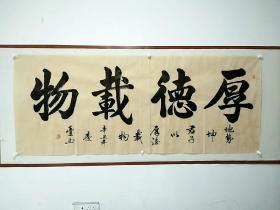 厚德載物
地勢坤君子以厚德載物